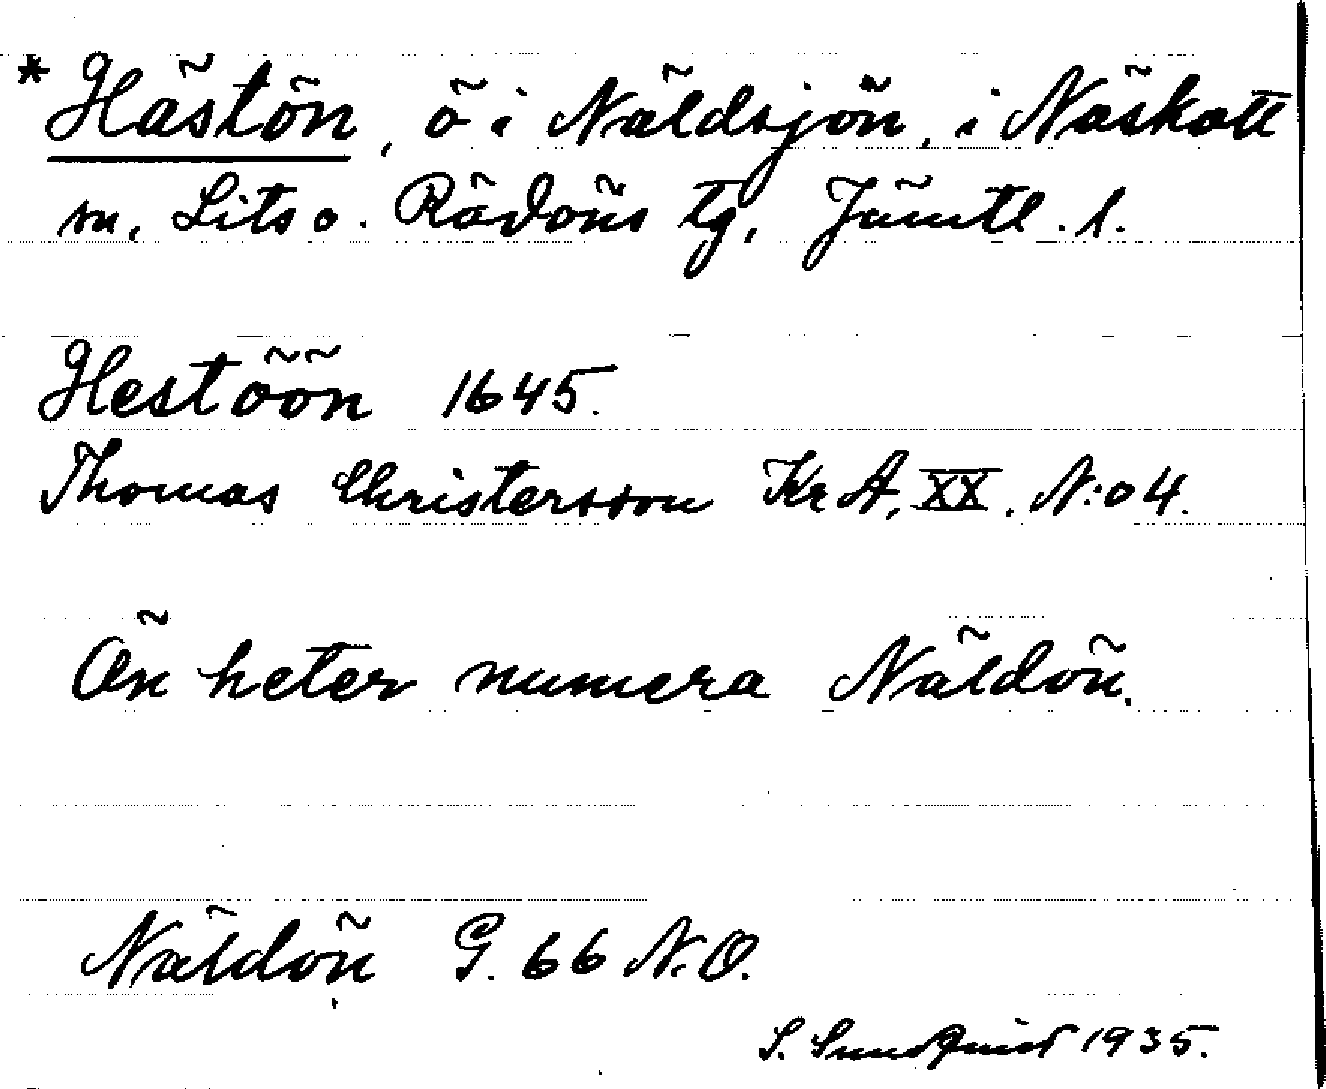 * Hästön, ö i Näldsjön, i Näskott
sn, Lits o. Rödöns tg, Jämtl. l.
Hestöön 1645.
Thomas Christersson Kr A. XX. N:o 4.
Ön heter numera Näldön.
Näldön G. 66 N.O.
S. Sundquist 1935.